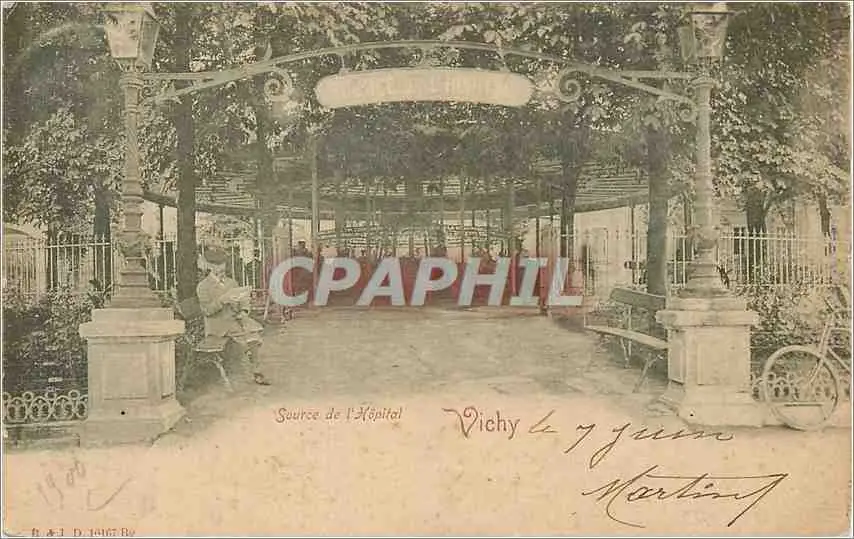 CPAPHIL
Source de l'Hôpital
Vichy le 7 juin
Martin
1900